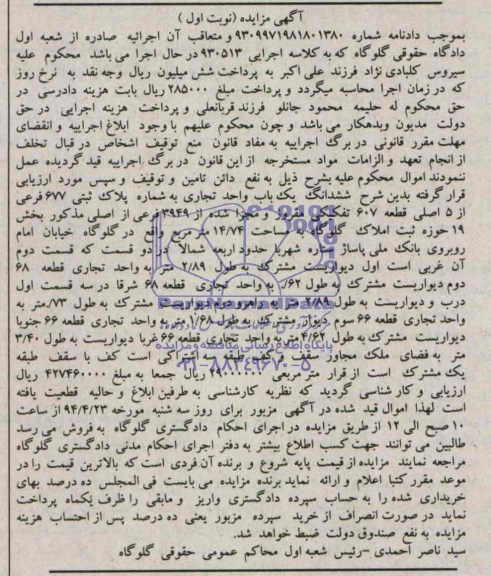 آگهی مزایده (نوبت اول)
بموجب دادنامه شماره ۹۳۰۹۹۷۱۹۸۱۸۰۱۳۸۰ و متعاقب آن اجرائیه صادره از شعبه اول
دادگاه حقوقی گلوگاه که به کلاسه اجرایی ۹۳۰۵۱۳ در حال اجرا می باشد محکوم علیه
سیروس گلبادی نژاد فرزند علی اکبر به پرداخت شش میلیون ریال وجه نقد به نرخ روز
که در زمان اجرا محاسبه میگردد و پرداخت مبلغ ۲۸۵۰۰۰ ریال بابت هزینه دادرسی در
حق محکوم له حلیمه محمود جانلو فرزند قربانعلی و پرداخت هزینه اجرایی در حق
دولت مدیون وبدهکار می باشد و چون محکوم علیهم با وجود ابلاغ اجراییه و انقضای
مهلت مقرر قانونی در برگ اجراییه به مفاد قانون منع توقیف اشخاص در قبال تخلف
از انجام تعهد و الزامات مواد مستخرجه از این قانون در برگ اجراییه قید گردیده عمل
ننمودند اموال محکوم علیه بشرح ذیل به نفع دائن تامین و توقیف و سپس مورد ارزیابی
قرار گرفته بدین شرح ششدانگ یک باب واحد تجاری به شماره پلاک ثبتی ۶۷۷ فرعی
از ۵ اصلی قطعه ۶۰۷ تفکیکی مفروز و مجزا شده از ۳۹۴۹ فرعی از اصلی مذکور بخش
۱۹ حوزه ثبت املاک گلوگاه به مساحت ۱۴/۷۴ متر مربع واقع در گلوگاه خیابان امام
روبروی بانک ملی پاساژ ستاره شهربا حدود اربعه شمالا در دو قسمت که قسمت دوم
آن غربی است اول دیواریست مشترک به طول ۲/۸۹ متر به واحد تجاری قطعه ۶۸
دوم دیواریست مشترک به طول ۶۲/. به واحد تجاری قطعه ۶۸ شرقا در سه قسمت اول
درب و دیواریست به طول ۲/۸۹ متر به راهرو دوم دیواریست مشترک به طول ۷۳/.متر به
واحد تجاری قطعه ۶۶ سوم دیوار مشترک به طول ۱/۶۸ متر به واحد تجاری قطعه ۶۶ جنوبا
دیواریست مشترک به طول ۴/۶۲ متر به واحد تجاری قطعه ۶۶ غربا دیواریست به طول ۳/۴۰
متر به فضای ملک مجاور سقف و کف طبقه سه اشتراکی است کف با سقف طبقه
یک مشترک است از قرار متر مربعی ریال جمعا به مبلغ ۴۲۷۴۶۰۰۰۰ ریال
ارزیابی و کار شناسی گردید که نظریه کارشناسی به طرفین ابلاغ و حالیه قطعیت یافته
است لهذا اموال قید شده در آگهی مزبور برای روز سه شنبه مورخه ۹۴/۴/۲۳ از ساعت
۱۰ صبح الی ۱۲ از طریق مزایده در اجرای احکام دادگستری گلوگاه به فروش می رسد
طالبین می توانند جهت کسب اطلاع بیشتر به دفتر اجرای احکام مدنی دادگستری گلوگاه
مراجعه نمایند مزایده از قیمت پایه شروع و برنده آن فردی است که بالاترین قیمت را در
موعد مقرر کتبا اعلام و ارائه نماید برنده مزایده می بایست فی المجلس ده درصد بهای
خریداری شده را به حساب سپرده دادگستری واریز و مابقی را ظرف یکماه پرداخت
نماید در صورت انصراف از خرید سپرده مزبور یعنی ده درصد پس از احتساب هزینه
مزایده به نفع صندوق دولت ضبط خواهد شد.
سید ناصر احمدی -رئیس شعبه اول محاکم عمومی حقوقی گلوگاه
ParsNamadData
پایگاه اطلاع رسانی مناقصه و مزایده
۰۲۱-۸۸۳۴۹۶۷۰-۵